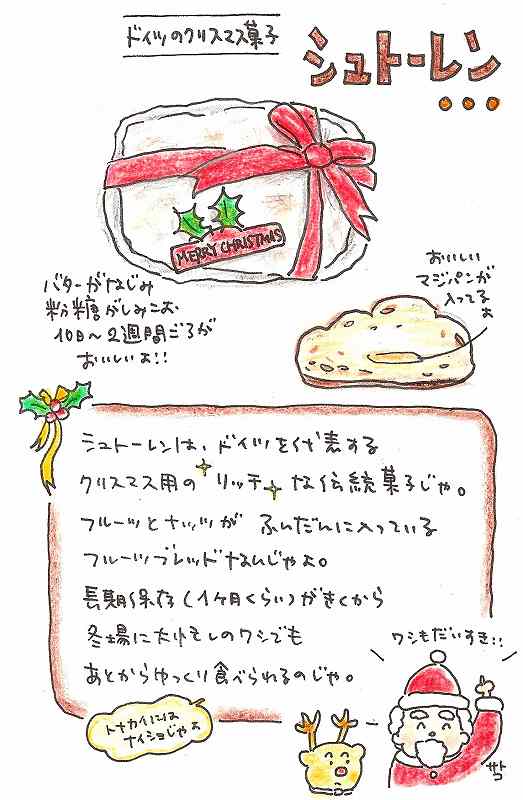 ドイツのクリスマス菓子
シュトーレン
MERRY CHRISTMAS
バターがなじみ
粉糖がしみこむ
10日〜2週間ごろが
おいしいよ!!
おいしい
マジパンが
入ってる
よ
シュトーレンは、ドイツを代表する
クリスマス用のリッチな伝統菓子じゃ。
フルーツとナッツが ふんだんに入っている
フルーツブレッドなんじゃよ。
長期保存(1ヶ月くらい)がきくから
冬場に大忙しのワシでも
あとからゆっくり食べられるのじゃ。
トナカイには
ナイショじゃよ
ワシもだいすき!!
サトコ